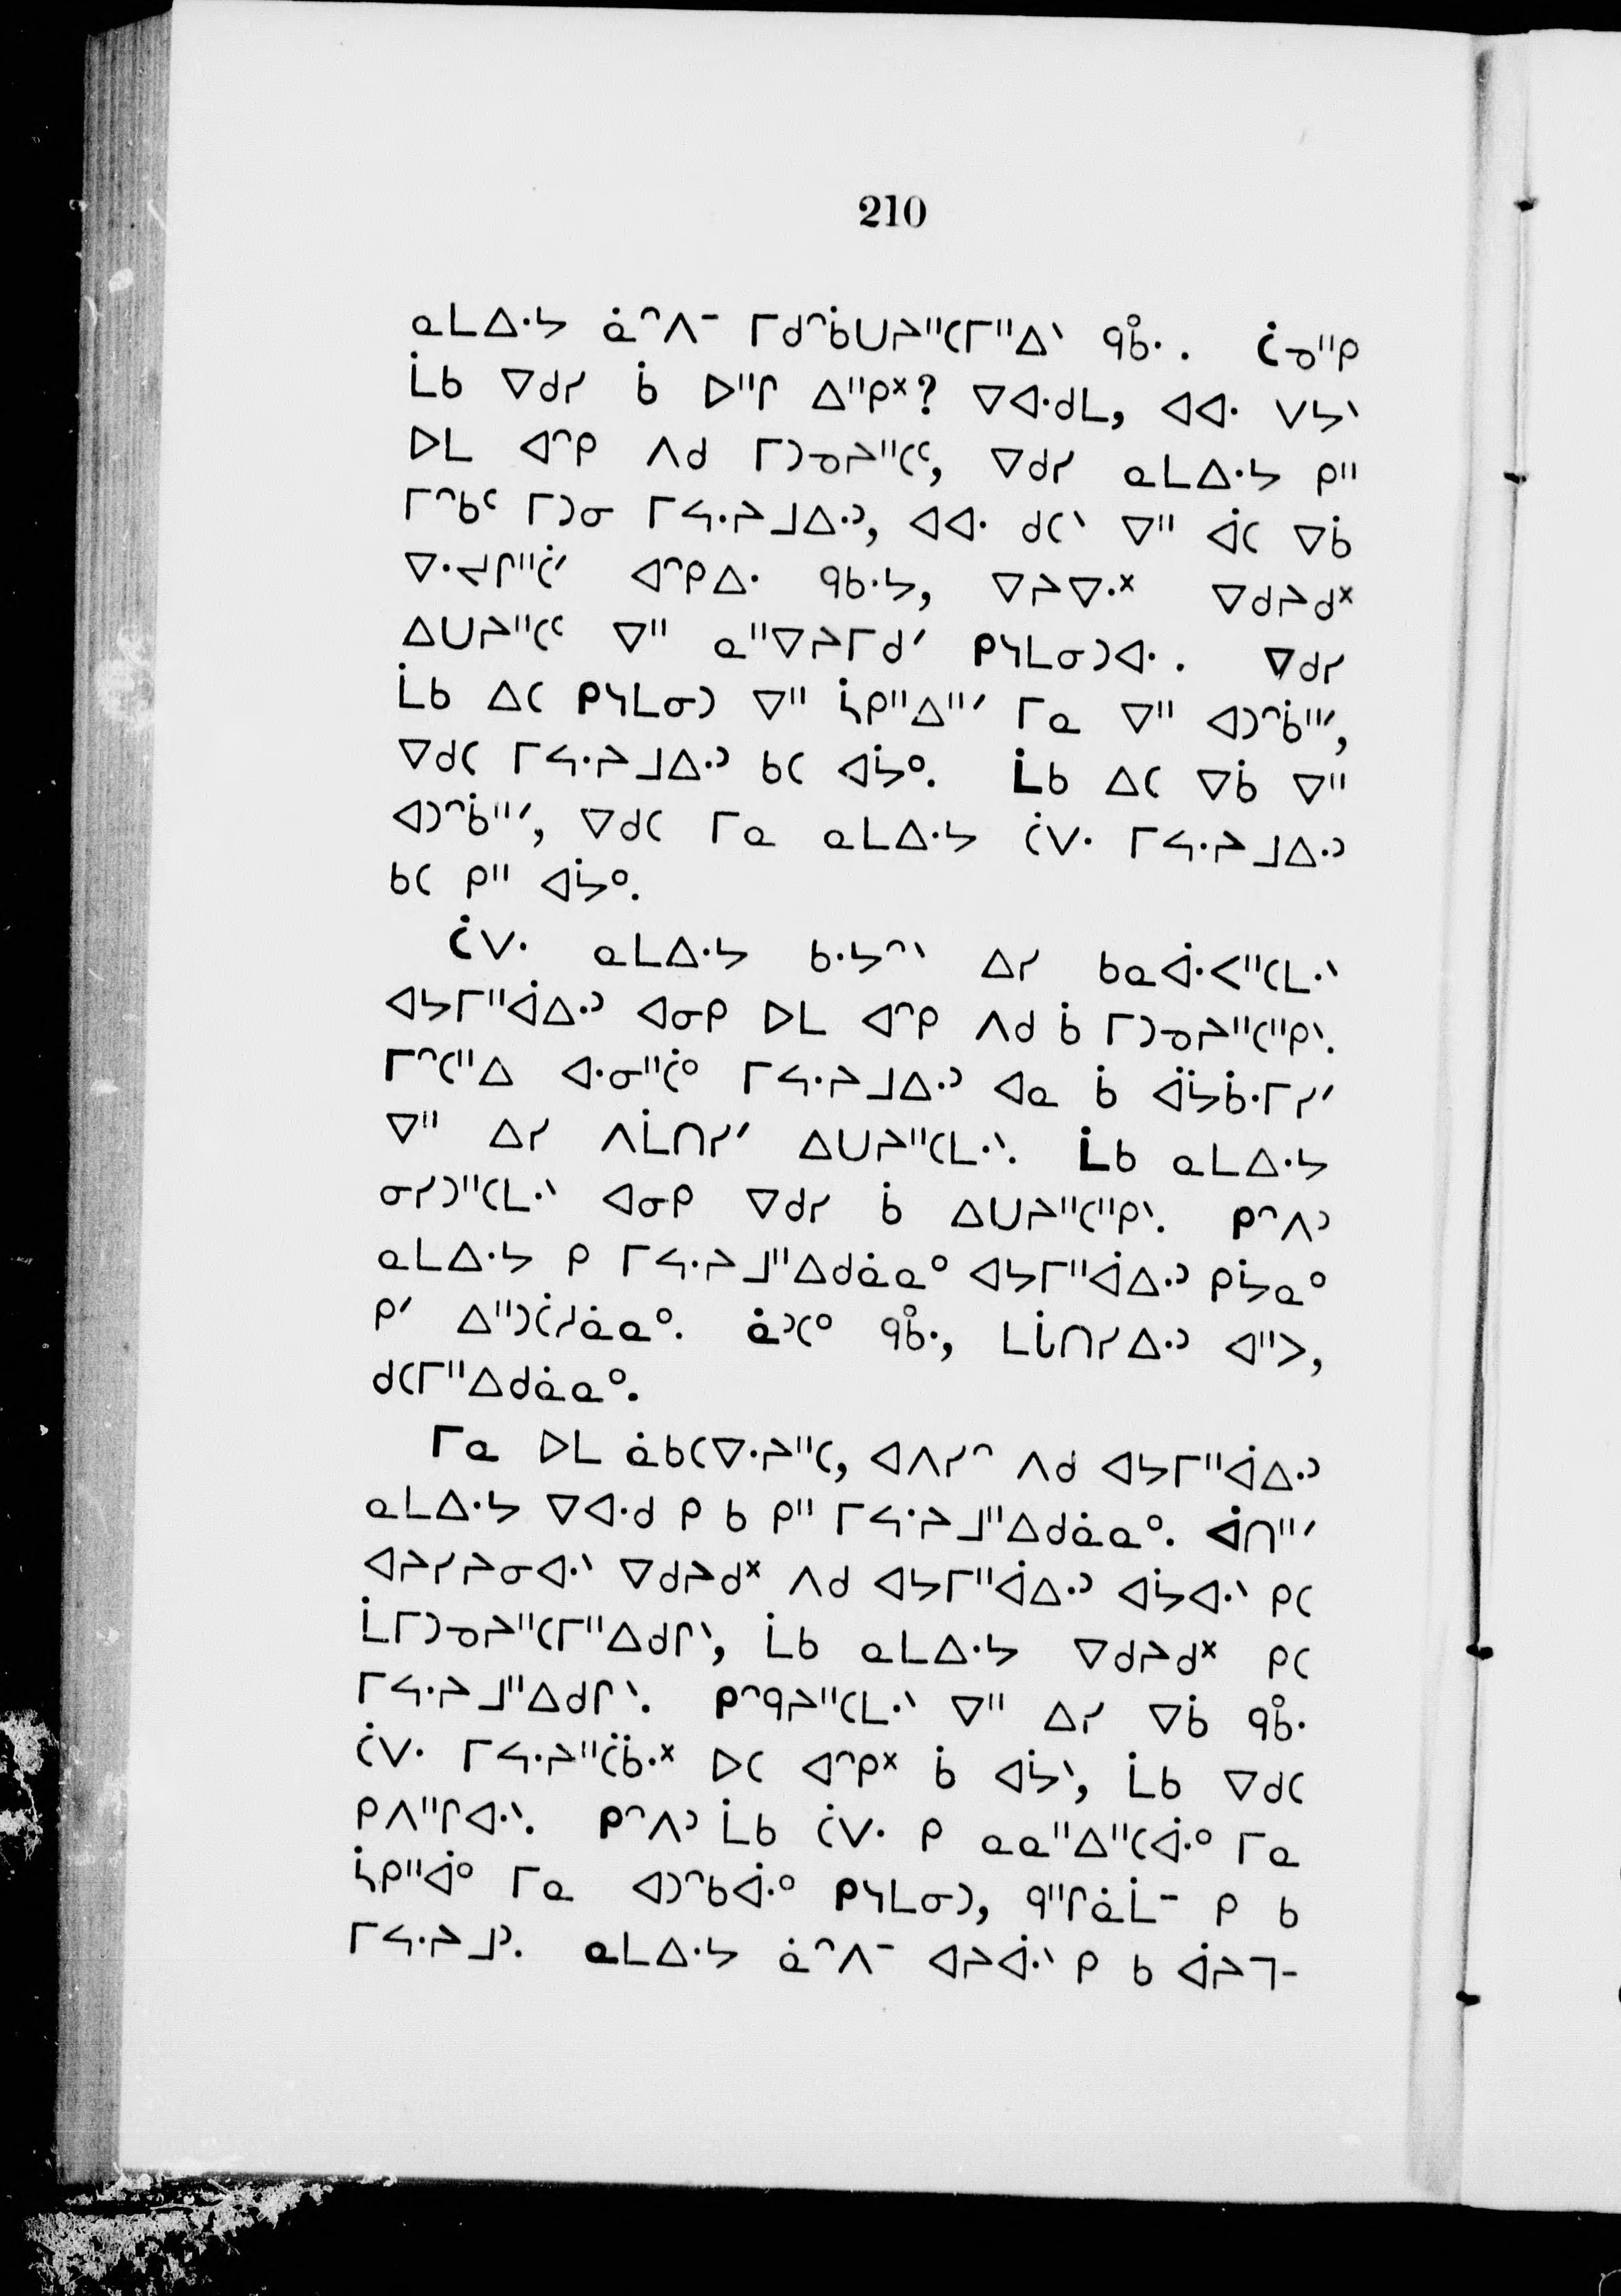 210
ᓇᒪᐃᐧᔭ ᓈᐢᐱᐨ ᒥᑯᐢᑳᑌᔨᐦᑕᒥᐦᐃᐠ ᑫᑤ. ᑖᓂᐦᑭ
ᒫᑲ ᐁᑯᓯ ᑳ ᐅᐦᒋ ᐃᐦᑭᕽ? ᐁᐊᐧᑯᒪ, ᐊᐊᐧ ᐯᔭᐠ
ᐅᒪ ᐊᐢᑭ ᐱᑯ ᒥᑐᓀᔨᐦᑕᑦ, ᐁᑯᓯ ᓇᒪᐃᐧᔭ ᑭᐦ
ᒥᐢᑲᑦ ᒥᑐᓂ ᒥᔦᐧᔨᒧᐃᐧᐣ, ᐊᐊᐧ ᑯᑕᐠ ᐁᐦ ᐋᑕ ᐁᑳ
ᐁᐧᔪᒋᐦᑖᐟ ᐊᐢᑭᐃᐧ ᑫᑲᐧᔭ, ᐁᔨᐁᐧᕽ ᐁᑯᔨᑯᕽ
ᐃᑌᔨᐦᑕᑦ ᐁᐦ ᓇᐦᐁᔨᒥᑯᐟ ᑭᓴᒪᓂᑐᐊᐧ. ᐁᑯᓯ
ᒫᑲ ᐃᑕ ᑭᓴᒪᓂᑐ ᐁᐦ ᓵᑭᐦᐃᐦᐟ ᒥᓇ ᐁᐦ ᐊᑐᐢᑳᐦᐟ,
ᐁᑯᑕ ᒥᔦᐧᔨᒧᐃᐧᐣ ᑲᑕ ᐊᔮᐤ. ᒫᑲ ᐃᑕ ᐁᑳ ᐁᐦ
ᐊᑐᐢᑳᐦᐟ, ᐁᑯᑕ ᒥᓇ ᓇᒪᐃᐧᔭ ᑖᐯᐧ ᒥᔦᐧᔨᒧᐃᐧᐣ
ᑲᑕ ᑭᐦ ᐊᔮᐤ.
ᑖᐯᐧ ᓇᒪᐃᐧᔭ ᑲᐧᔭᐢᐠ ᐃᓯ ᑲᓇᐋᐧᐸᐦᑕᒪᐧᐠ
ᐊᔭᒥᐦᐋᐃᐧᐣ ᐊᓂᑭ ᐅᒪ ᐊᐢᑭ ᐱᑯ ᑳ ᒥᑐᓀᔨᐦᑕᐦᑭᐠ.
ᒥᐢᑕᐦᐃ ᐊᐧᓂᐦᑖᐤ ᒥᔦᐧᔨᒧᐃᐧᐣ ᐊᓇ ᑳ ᐋᔭᑳᐧᒥᓯᐟ
ᐁᐦ ᐃᓯ ᐱᒫᑎᓯᐟ ᐃᑌᔨᐦᑕᒪᐧᐠ. ᒫᑲ ᓇᒪᐃᐧᔭ
ᓂᓯᑐᐦᑕᒪᐧᐠ ᐊᓂᑭ ᐁᑯᓯ ᑳ ᐃᑌᔨᐦᑕᐦᑭᐠ. ᑭᐢᐱᐣ
ᓇᒪᐃᐧᔭ ᑭ ᒥᔦᐧᔨᒧᐦᐃᑯᓈᓇᐤ ᐊᔭᒥᐦᐋᐃᐧᐣ ᑭᔮᓇᐤ
ᑭᐟ ᐃᐦᑐᑖᓱᓈᓇᐤ. ᓈᐣᑕᐤ ᑫᑤ, ᒪᒑᑎᓯᐃᐧᐣ ᐊᐦᐳ,
ᑯᑕᒥᐦᐃᑯᓈᓇᐤ.
ᒥᓇ ᐅᒪ ᓈᑲᑕᐁᐧᔨᐦᑕ, ᐊᐱᓯᐢ ᐱᑯ ᐊᔭᒥᐦᐋᐃᐧᐣ
ᓇᒪᐃᐧᔭ ᐁᐊᐧᑯ ᑭ ᑲ ᑭᐦ ᒥᔦᐧᔨᒧᐦᐃᑯᓈᓇᐤ. ᐋᑎᐦᐟ
ᐊᔨᓯᔨᓂᐊᐧᐠ ᐁᑯᔨᑯᕽ ᐱᑯ ᐊᔭᒥᐦᐋᐃᐧᐣ ᐊᔮᐊᐧᐠ ᑭᑕ
ᒫᒥᑐᓀᔨᐦᑕᒥᐦᐃᑯᒋᐠ, ᒫᑲ ᓇᒪᐃᐧᔭ ᐁᑯᔨᑯᕽ ᑭᑕ
ᒥᔦᐧᔨᒧᐦᐃᑯᒋᐠ. ᑭᐢᑫᔨᐦᑕᒪᐧᐠ ᐁᐦ ᐃᓯ ᐁᑳ ᑫᑤ
ᑖᐯᐧ ᒥᔦᐧᔨᐦᑖᑲᐧᕽ ᐅᑕ ᐊᐢᑭᕽ ᑳ ᐊᔮᐠ, ᒫᑲ ᐁᑯᑕ
ᑭᐱᐦᒋᐊᐧᐠ. ᑭᐢᐱᐣ ᒫᑲ ᑖᐯᐧ ᑭ ᓇᓇᐦᐃᐦᑕᐋᐧᐤ ᒥᓇ
ᓵᑭᐦᐋᐤ ᒥᓇ ᐊᑐᐢᑲᐋᐧᐤ ᑭᓴᒪᓂᑐ, ᑫᐦᒋᓈᒫᐨ ᑭ ᑲ
ᒥᔦᐧᔨᒧᐣ. ᓇᒪᐃᐧᔭ ᓈᐢᐱᐨ ᐊᔨᐋᐧᐠ ᑭ ᑲ ᐋᔨᒣ-